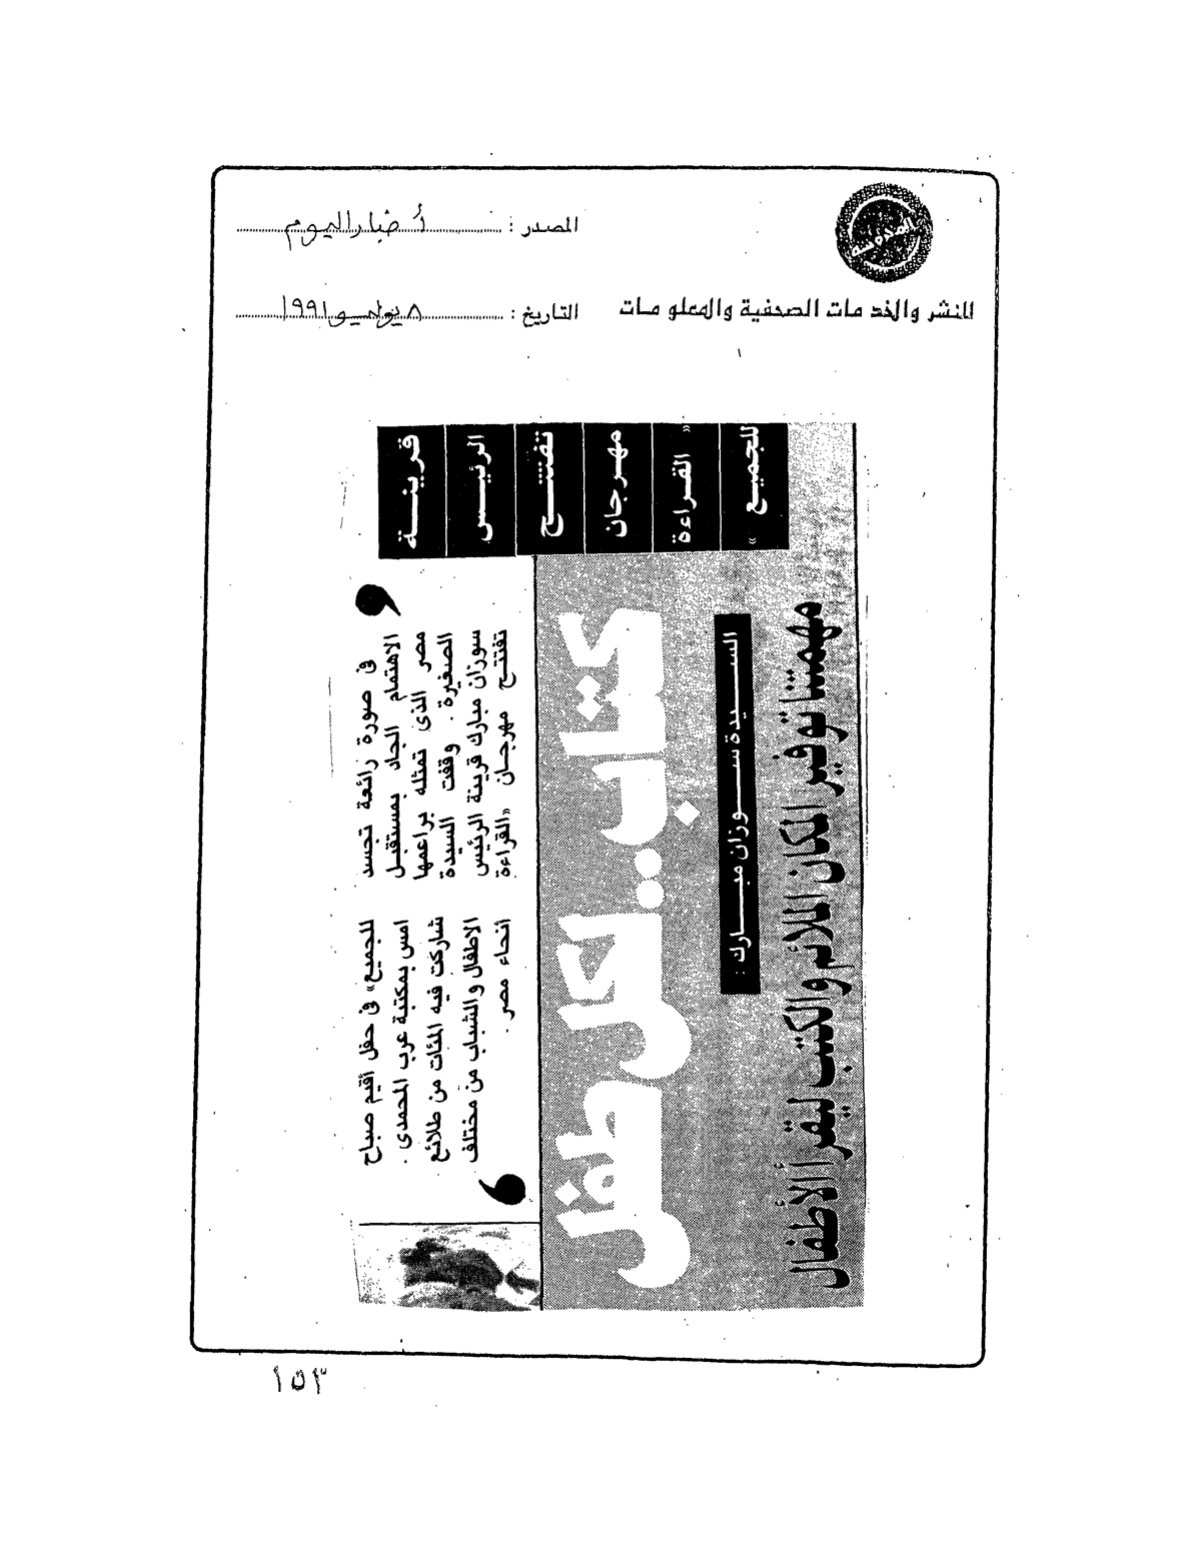 المصدر : أخبار اليوم
للنشر والخدمات الصحفية والمعلومات
التاريخ : ٨ يوليو ١٩٩١
قرينة
الرئيس
تفتتح
مهرجان
« القراءة
للجميع »
كتاب .. لكل طفل
السيدة سوزان مبارك :
مهمتنا توفير المكان الملائم والكتب ليقرأ الأطفال
فى صورة رائعة تجسد
الاهتمام الجاد بمستقبل
مصر الذى تمثله براعمها
الصغيرة . وقفت السيدة
سوزان مبارك قرينة الرئيس
تفتتح مهرجان «القراءة
للجميع» فى حفل أقيم صباح
امس بمكتبة عرب المحمدى .
شاركت فيه المئات من طلائع
الاطفال والشباب من مختلف
أنحاء مصر .
١٥٣